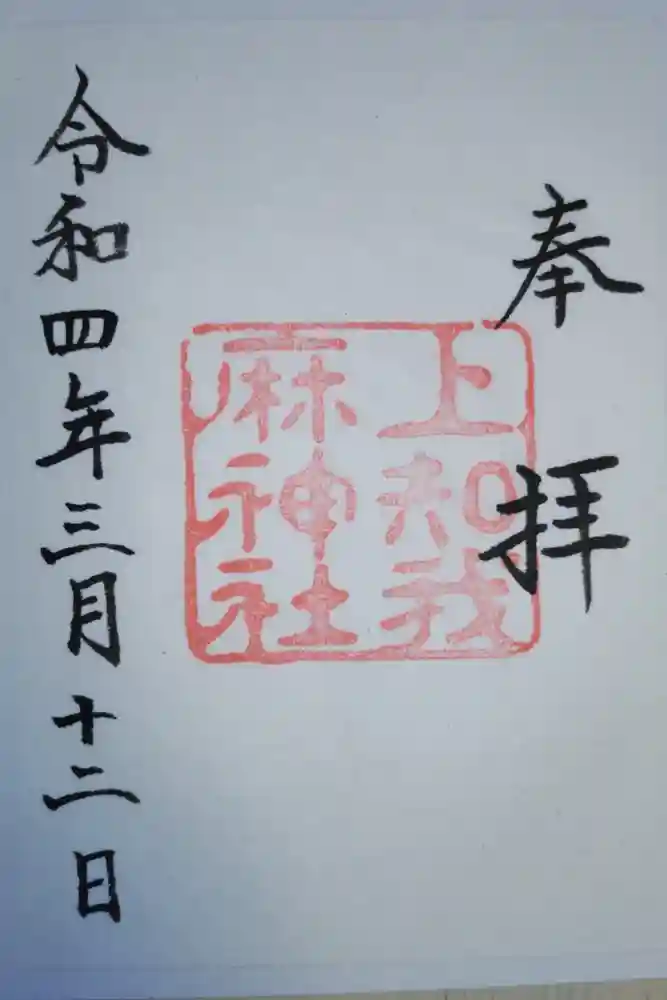 奉拝
上知我
麻神社
令和四年三月十二日